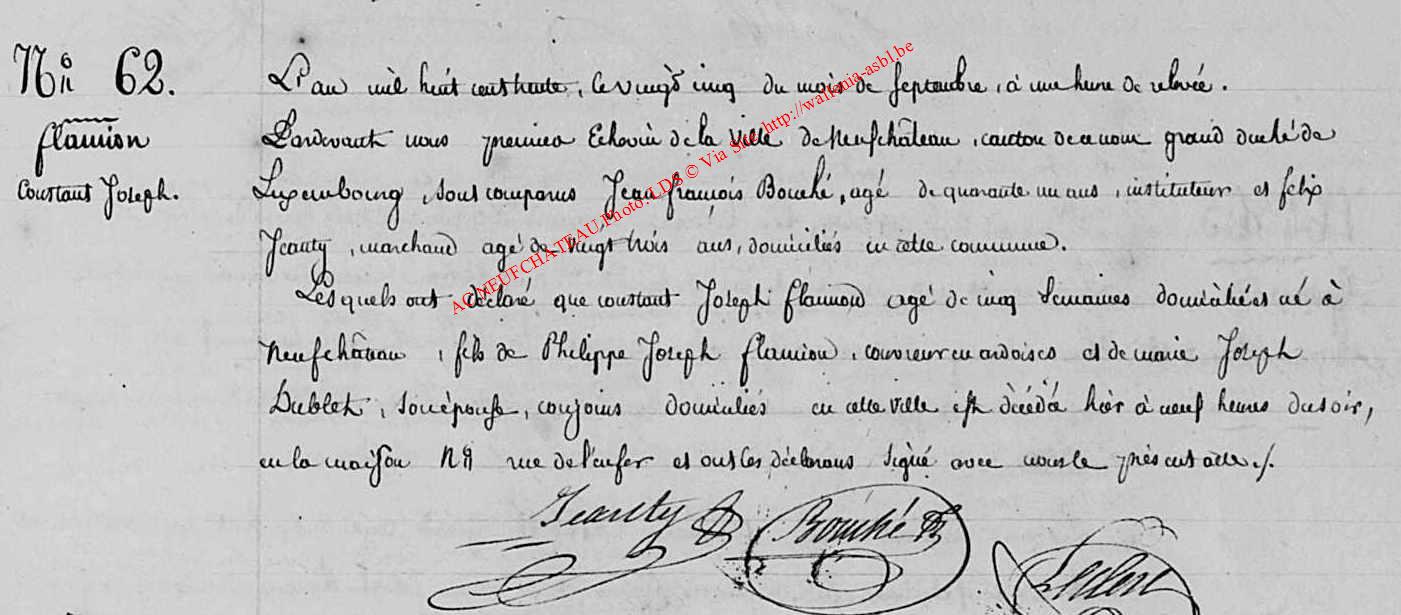 No 62.
flamion
Constant Joseph.
L'an mil huit cent trente, le vingt cinq du mois de Septembre, à une heure de relevée.
Pardevant nous premier Echevin de la ville de Neufchâteau, canton de ce nom grand duché de
Luxembourg, sont comparus Jean françois Bouché, agé de quarante un ans, instituteur et felix
Jeanty, marchand agé de vingt trois ans, domiciliés en cette commune.
Lesquels ont déclaré que constant Joseph flamion agé de cinq Semaines domicilié et né à
Neufchâteau, fils de Philippe Joseph flamion, couvreur en ardoises et de marie Joseph
Dublet, son épouse, conjoins domiciliés en cette ville est décédé hier à neuf heures du soir,
en la maison rue de l'enfer et ont les déclarans signé avec nous le présent acte ./.
Jeanty Bouché
Leclerc
AC NEUFCHATEAU Photo: LDS © Via Site http://wallonia-asbl.be